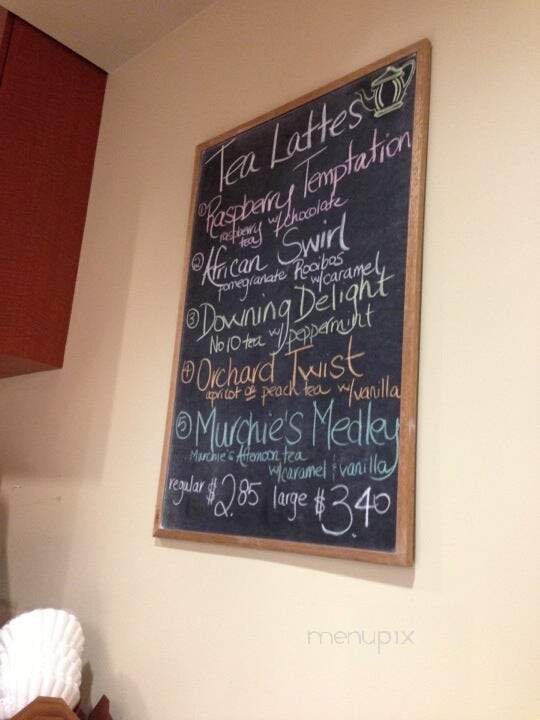 Tea Lattes
① Raspberry Temptation
raspberry tea w/chocolate
② African Swirl
pomegranate Rooibos w/caramel
③ Downing Delight
No 10 tea w/ peppermint
④ Orchard Twist
apricot or peach tea w/vanilla
⑤ Murchie's Medley
Murchie's Afternoon tea
w/caramel & vanilla
regular $2.85 large $3.40
menupix